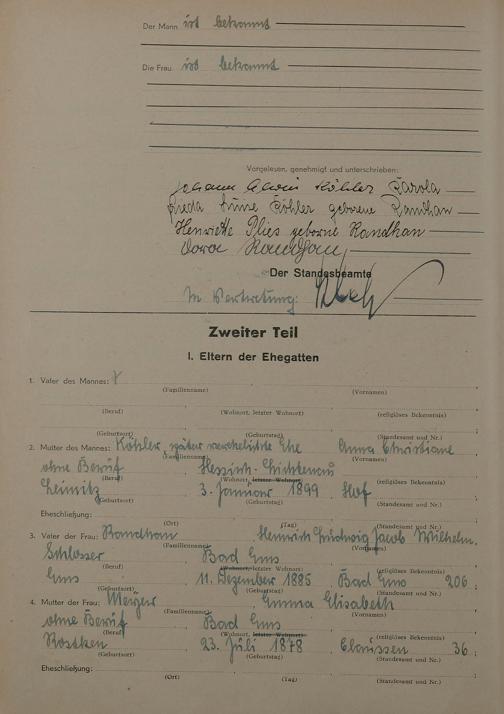 Der Mann ist bekannt
Die Frau ist bekannt
Vorgelesen, genehmigt und unterschrieben:
Johann Köhler Carola
Frieda Köhler geborene Randhan
Henriette Plies geborne Randhan
Dora Randhan
Der Standesbeamte
In Vertretung:
Zweiter Teil
I. Eltern der Ehegatten
1. Vater des Mannes:
(Familienname) (Vornamen)
(Beruf) (Wohnort, letzter Wohnort) (religiöses Bekenntnis)
(Geburtsort) (Geburtstag) (Standesamt und Nr.)
2. Mutter des Mannes: Köhler, später verehelichte Anna Christiane
(Familienname) (Vornamen)
ohne Beruf Hessisch-Lichtenau
(Beruf) (Wohnort, letzter Wohnort)
Leimitz 3. Januar 1899 Hof
(Geburtsort) (Geburtstag) (Standesamt und Nr.)
Eheschließung:
(Ort) (Tag) (Standesamt und Nr.)
3. Vater der Frau: Randhan Heinrich Ludwig Jacob Wilhelm.
(Familienname) (Vornamen)
Schlosser Bad Ems
(Beruf) (Wohnort, letzter Wohnort) (religiöses Bekenntnis)
Ems 11. Dezember 1885 Bad Ems 206
(Geburtsort) (Geburtstag) (Standesamt und Nr.)
4. Mutter der Frau: Meyer Emma Elisabeth
(Familienname) (Vornamen)
ohne Beruf Bad Ems
(Beruf) (Wohnort, letzter Wohnort) (religiöses Bekenntnis)
Rostken 23. Juli 1878 Claussen 36
(Geburtsort) (Geburtstag) (Standesamt und Nr.)
Eheschließung:
(Ort) (Tag) (Standesamt und Nr.)